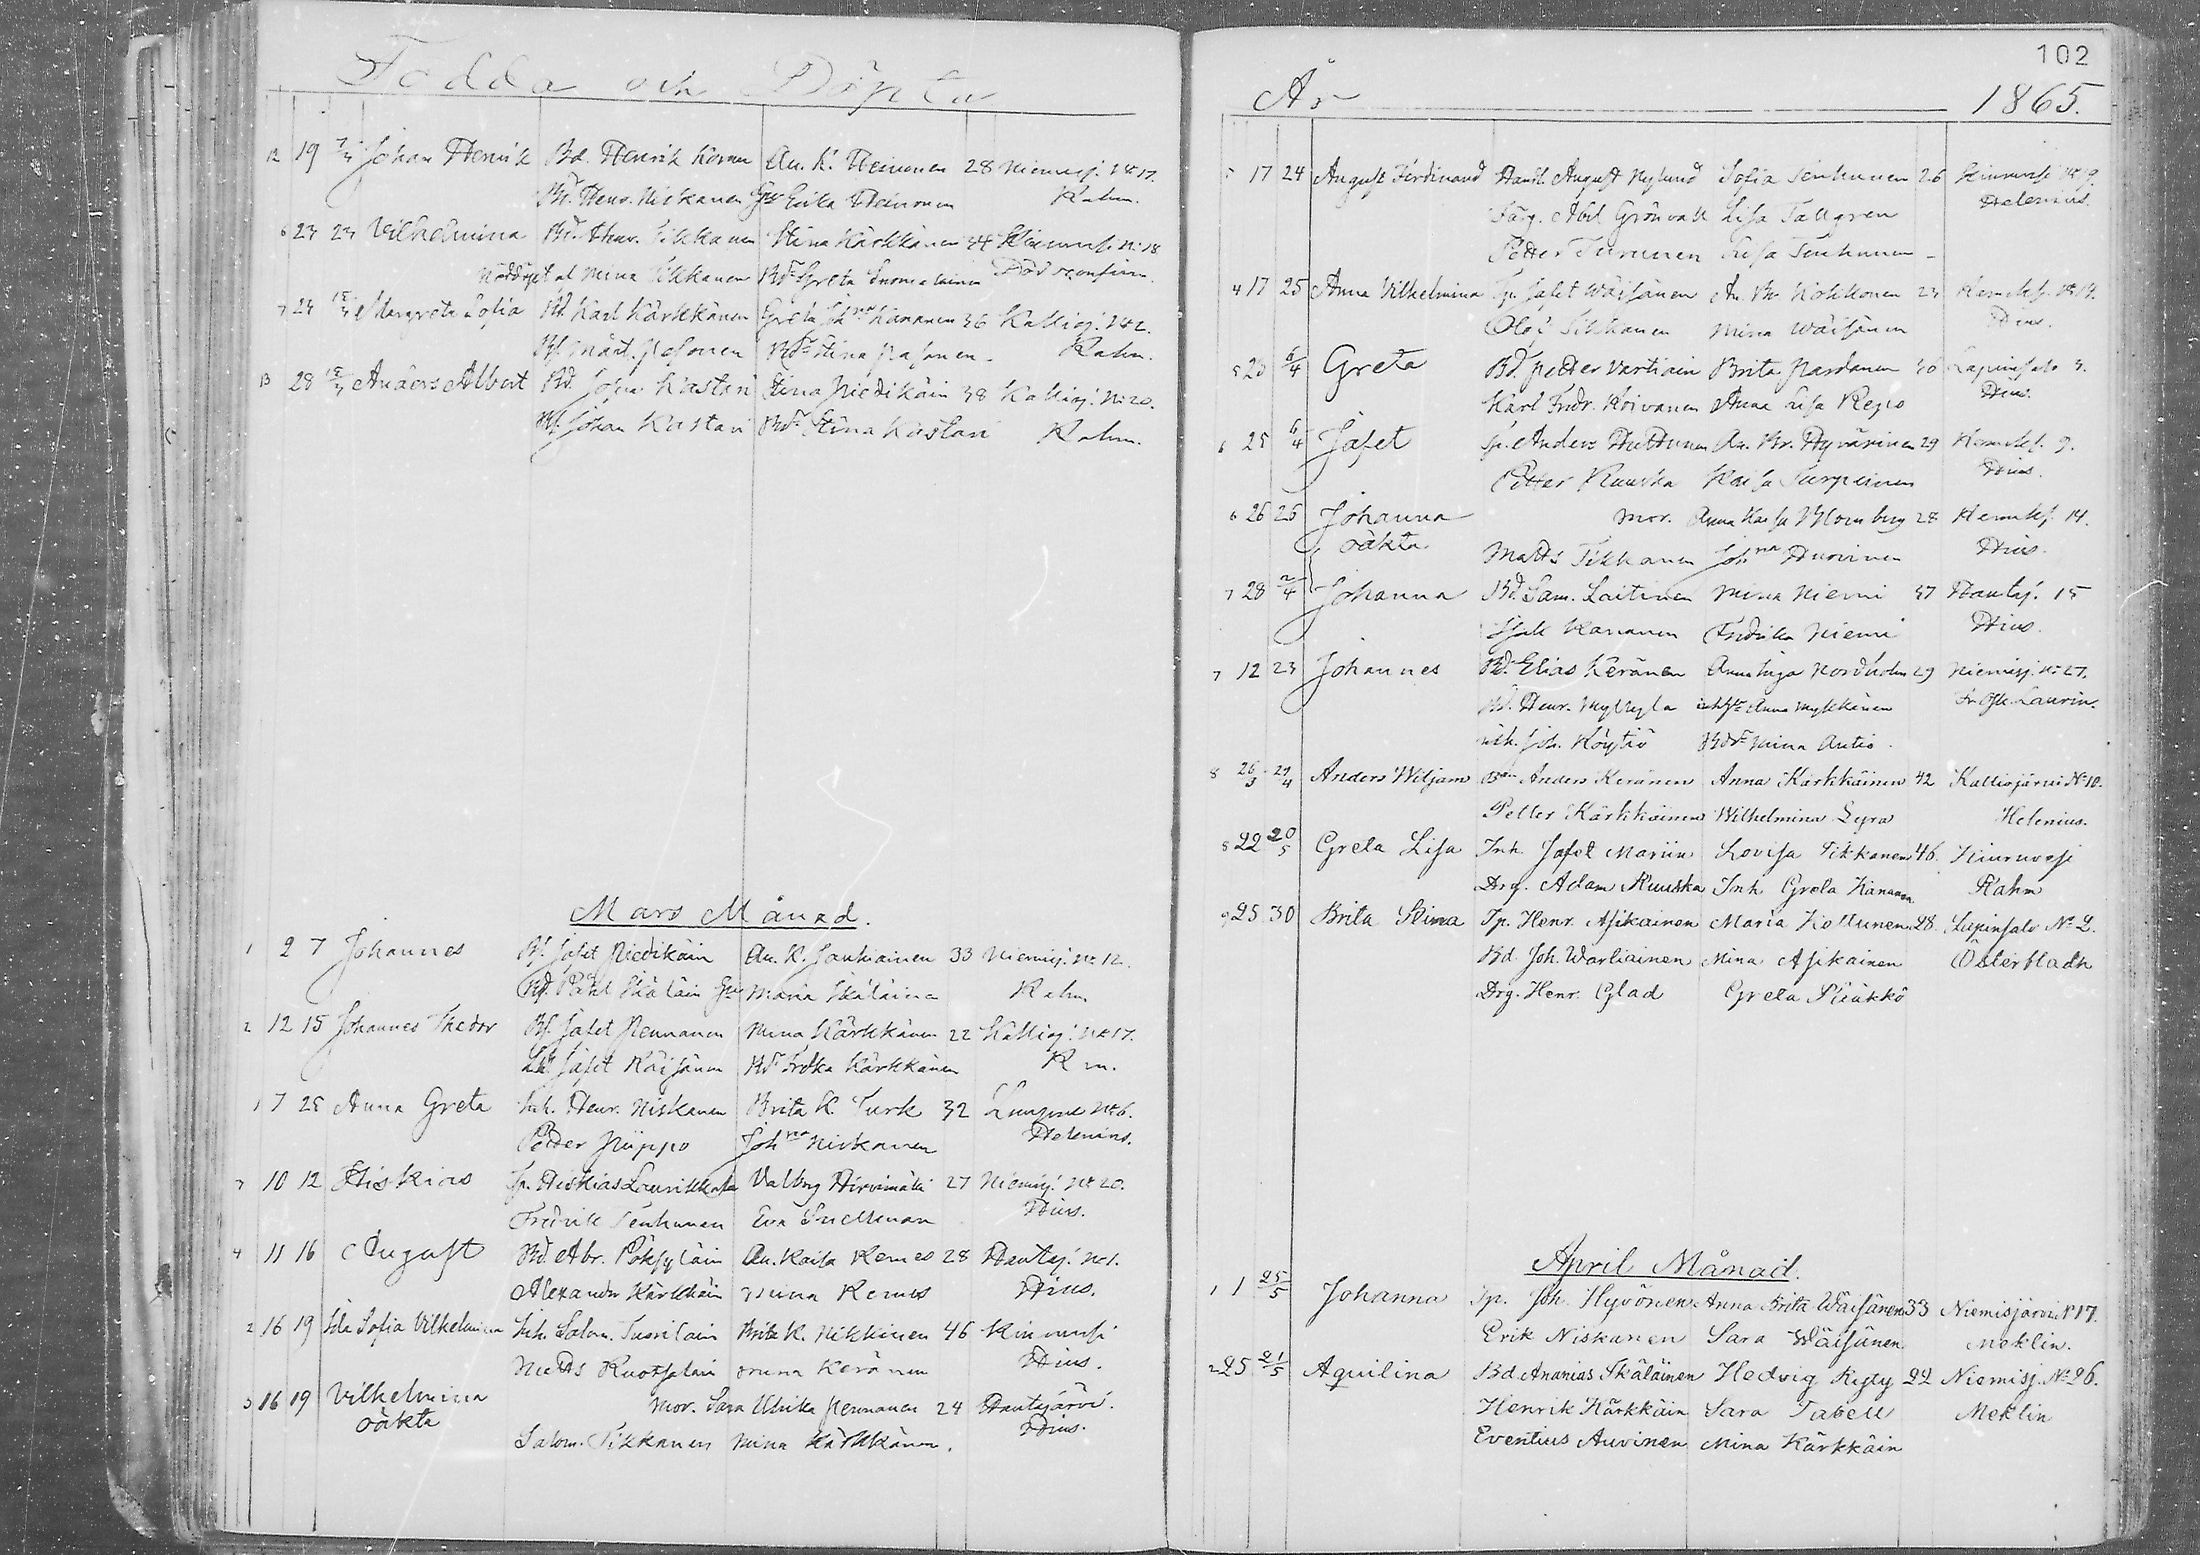 Födda och Döpta
12 19 Johan Henrik Bd. Henrik Korme An. K. Heinonen 28 Niemisj. N:o 17.
Bd. Henr. Niskanen Erika Heinonen Rahm.
6 23 23 Vilhelmina Bd. Henr. Tikkanen Stina Kärkkänen 34 N:o 18
Nöddöpt af Mina Tikkanen Greta
7 24 Margreta Sofia Bd. Karl Kärkkänen Greta Joh:na Kananen 36 Kallioj. N:o 2.
Bf. Mårt. Pasonen Stina Pasonen. Rahm.
13 28 Anders Albert Bd. Johan Kastari Stina Miedikäin 38 Kallioj. N:o 20.
Bf. Johan Kastari Stina Kastari Rahm.
Mars Månad.
1 2 7 Johannes Bf. Jafet Miedikäin An. K. Jauhiainen 33 Niemisj. N:o 12.
Bd. Påhl Skäläin Maria Skäläinen Rahm
2 12 15 Johannes Thedor Bf. Jafet Pennanen Mina Kärkkänen 22 Kallioj. N:o 17.
Jafet Räisänen Kärkkänen R m.
1 7 25 Anna Greta Inh. Henr. Niskanen Brita K. Turk 32 N:o 6.
Petter Piippo Joh:na Niskanen Helenius.
3 10 12 Hiskias Sp. Hiskias Valborg Hirvimäki 27 Niemisj. N:o 20.
Fredrik Tenhunen Eva Snellman Hius.
4 11 16 August Bd. Abr. Pöksyläin An. Kaisa Remes 28 Hautaj. N:o 1.
Alexander Kärkkäin Mina Remes Hius.
2 16 19 Ida Sofia Vilhelmina Inh. Salom. Brita K. Nikkinen 46
Matts Ruotsalain Mina Keränen Hius.
5 16 19 Vilhelmina Mor. Sara Ulrika Pennanen 24 Hautajärvi.
oäkta
Salom. Tikkanen Mina Kärkkänen. Hius.
102
År 1865.
17 24 August Ferdinand Handl. August Nylund Sofia Tenhunen 26 N:o 9.
Färg. Abel Grönvall Lisa Tallgren Helenius.
Petter Turunen Lisa Tenhunen
4 17 25 Anna Vilhelmina Sp. Jafet Wäisänen An. Br. Kokkonen 23 N:o 14.
Olof Tikkanen Mina Wäisänen Hius.
5 23 6/4 Greta Bd. Petter Vartiain Brita Pardanen 30 Lapinsalo 3.
Karl Fredr. Koivanen Anna Lisa Repo Hius.
6 25 6/4 Jafet Sp. Anders Huttunen An. Br. Hyvärinen 29 9.
Petter Ruuska Kaisa Turpeinen Hius.
6 26 26 Johanna Mor. Anna Kaisa Blomberg 28 14.
oäkta Matts Tikkanen Joh:na Hurvinen Hius.
7 28 2/4 Johanna Bd. Sam. Laitinen Mina Niemi 37 Hautaj. 15
Isak Kananen Fredrika Niemi Hius.
7 12 23 Johannes Bd. Elias Keränen Anna Inga Nordholm 29 Niemisj. N:o 27.
Bd. Henr. Myllylä Anna Mykkänen Laurin.
inh. Joh. Köytiö Mina Autio.
8 26/3 29/4 Anders Wiljam Anders Keränen Anna Kärkkäinen 42 Kalliojärvi N:o 10.
Petter Kärkkäinen Wilhelmina Lyra Helenius.
8 22 20/5 Greta Lisa Inh. Jafet Mariin Lovisa Tikkanen 46.
Drg. Adam Ruuska Inh Greta Känanen Rahm
9 25 30 Brita Stina Sp. Henr. Asikainen Maria Kottunen 28. Lapinsalo N:o 2.
Bd. Joh. Wartiainen Mina Asikainen Österbladh
Drg. Henr. Glad Greta Pääkkö
April Månad.
1 1 25/5 Johanna Sp. Joh. Hyvönen Anna Brita Wäisänen 33 Niemisjärvi N:o 17.
Erik Niskanen Sara Wäisänen Meklin.
2 25 21/5 Aquilina Bd. Ananias Skäläinen Hedvig Ryty 22 Niemisj. N:o 26.
Henrik Kärkkäin Sara Tabell Meklin
Eventius Auvinen Mina Kärkkäin